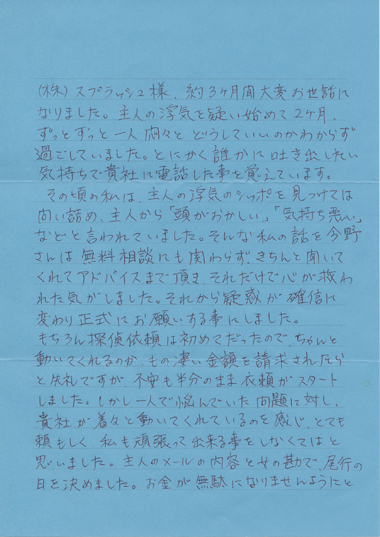 (株)スプラッシュ様、約3ヶ月間大変お世話に
なりました。主人の浮気を疑い始めて2ヶ月、
ずっとずっと一人悶々と どうしていいのかわからず
過ごしていました。とにかく誰かに吐き出したい
気持ちで貴社に電話した事を覚えています。
その頃の私は、主人の浮気のシッポを見つけては
問い詰め、主人から「頭がおかしい」「気持ち悪い」
などと言われていました。そんな私の話を今野
さんは無料相談にも関わらずきちんと聞いて
くれてアドバイスまで頂き、それだけで心が救わ
れた気がしました。それから疑惑が確信に
変わり正式にお願いする事にしました。
もちろん探偵依頼は初めてだったので、ちゃんと
動いてくれるのか、もの凄い金額を請求されたら
と失礼ですが、不安も半分のまま依頼がスタート
しました。しかし一人で悩んでいた問題に対し、
貴社が着々と動いてくれているのを感じ、とても
頼もしく 私も頑張って出来る事をしなくてはと
思いました。主人のメールの内容と女の勘で、尾行の
日を決めました。お金が無駄になりませんようにと